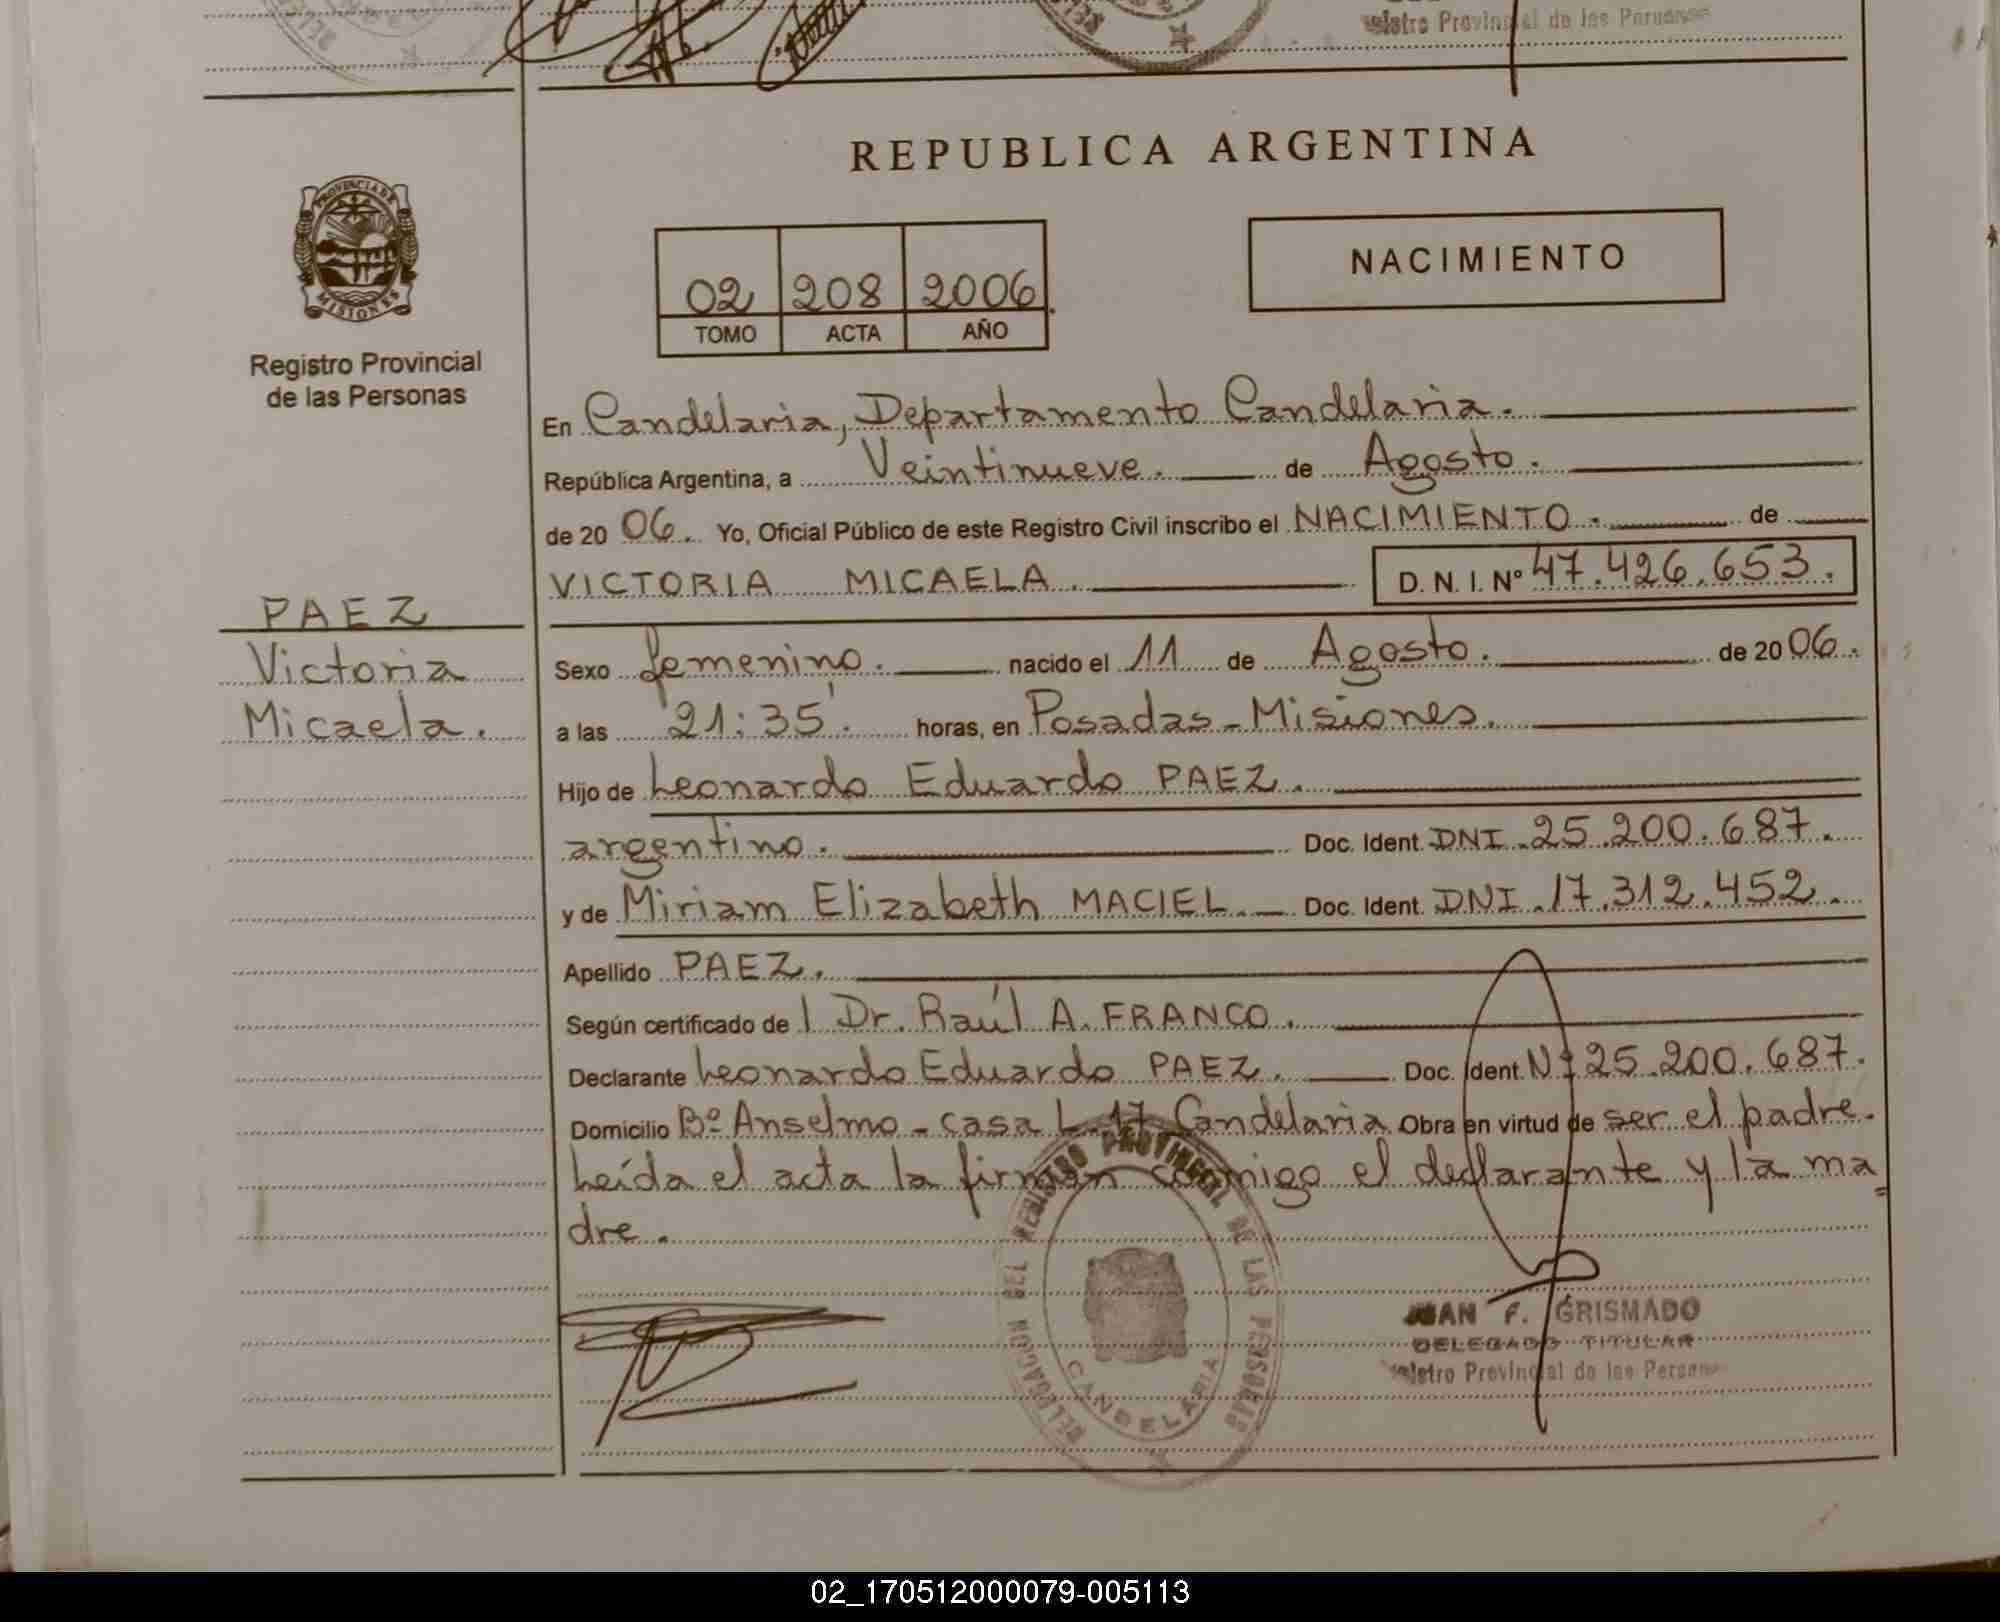 istro Provincial de las Personas
REPUBLICA ARGENTINA
PROVINCIA DE
MISIONES
Registro Provincial
de las Personas
02 208 2006
TOMO ACTA AÑO
NACIMIENTO
En Candelaria, Departamento Candelaria.
República Argentina, a Veintinueve. de Agosto.
de 20 06. Yo, Oficial Público de este Registro Civil inscribo el NACIMIENTO. de
VICTORIA MICAELA. D. N. I. Nº 47.426.653.
PAEZ
Victoria
Micaela.
Sexo femenino. nacido el 11 de Agosto. de 20 06.
a las 21:35'. horas, en Posadas - Misiones.
Hijo de Leonardo Eduardo PAEZ.
argentino. Doc. Ident. DNI. 25.200.687.
y de Miriam Elizabeth MACIEL. Doc. Ident. DNI. 17.312.452.
Apellido PAEZ.
Según certificado de l Dr. Raúl A. FRANCO.
Declarante Leonardo Eduardo PAEZ. Doc. Ident. Nº 25.200.687.
Domicilio Bº Anselmo - casa L-17 Candelaria Obra en virtud de ser el padre.
Leída el acta la firman conmigo el declarante y la ma=
dre.
DELEGACION DEL REGISTRO PROVINCIAL DE LAS PERSONAS
CANDELARIA
JUAN F. GRISMADO
DELEGADO TITULAR
istro Provincial de las Persona
02_170512000079-005113